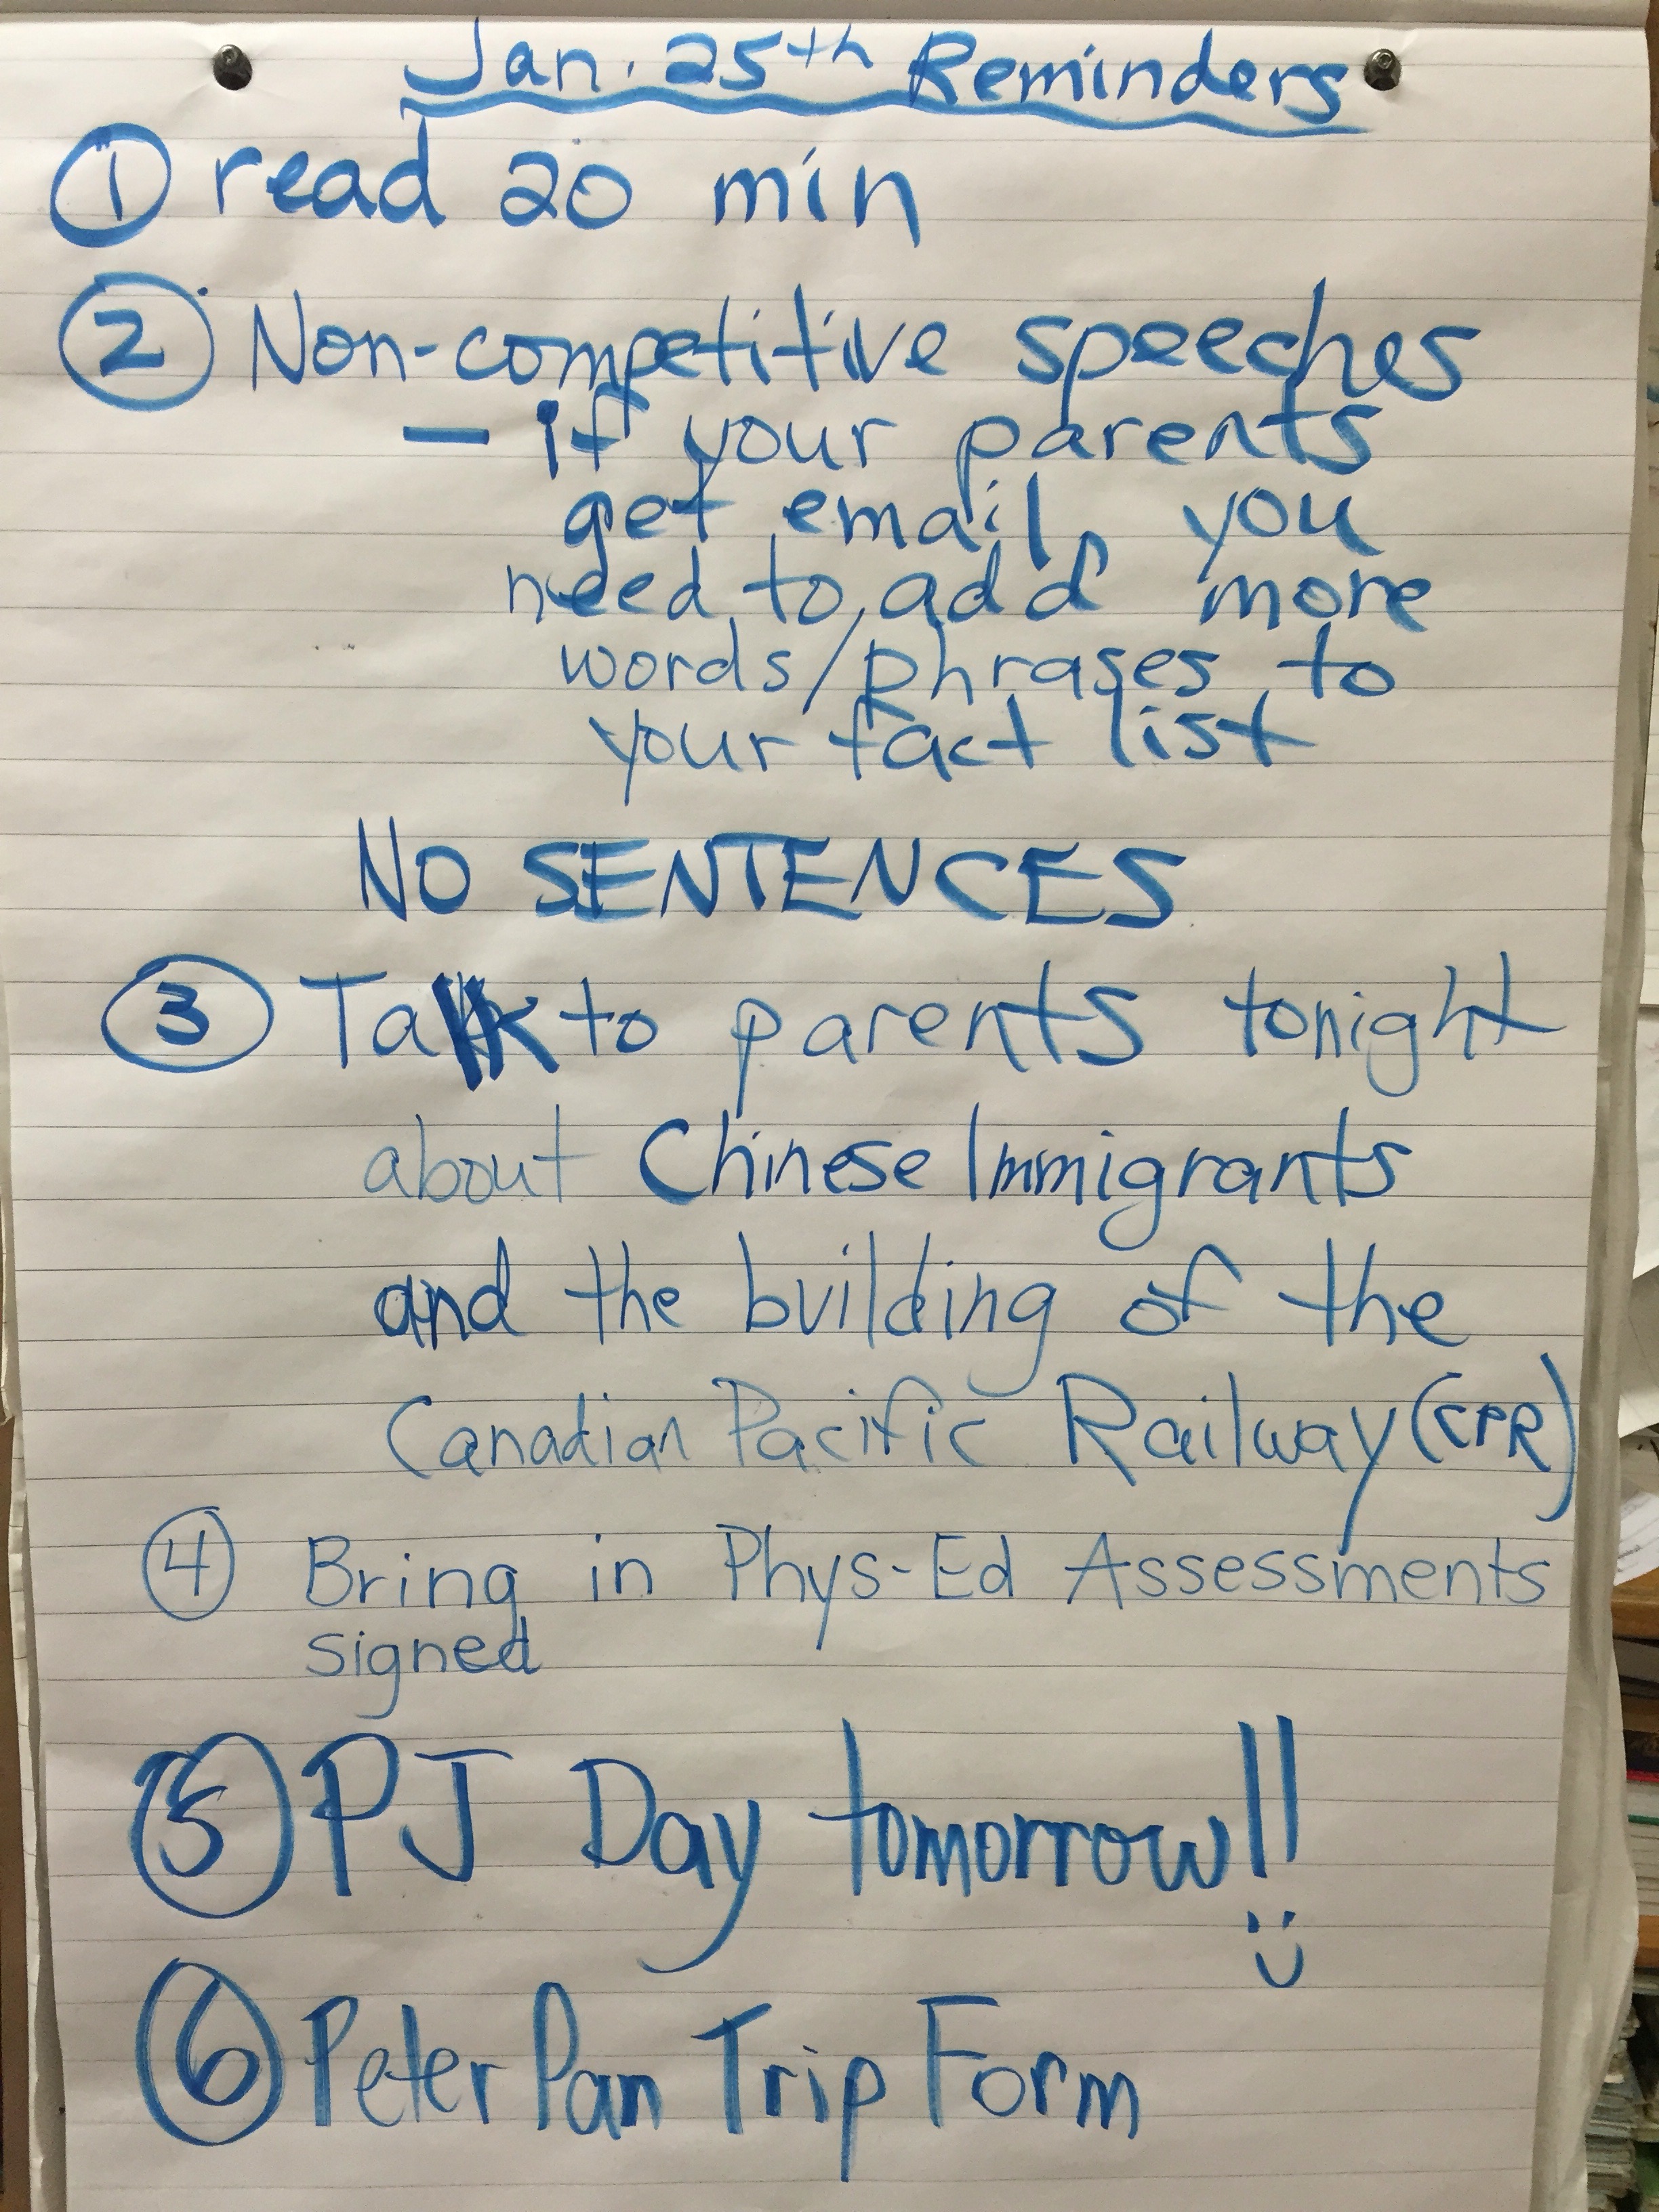 Jan. 25th Reminders
① read 20 min
② Non-competitive speeches
- if your parents
get email, you
need to add more
words/phrases to
your fact list
NO SENTENCES
③ Talk to parents tonight
about Chinese Immigrants
and the building of the
Canadian Pacific Railway (CPR)
④ Bring in Phys-Ed Assessments
signed
⑤ PJ Day tomorrow!!
⑥ Peter Pan Trip Form